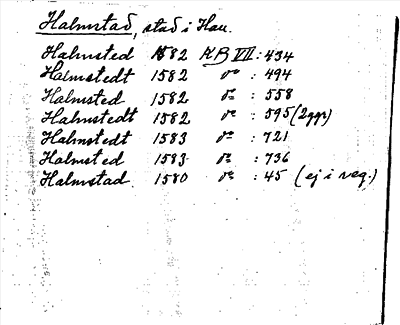 Halmstad, stad i Hall.
Halmsted 1582 KB VII: 434
Halmstedt 1582 do : 494
Halmsted 1582 do : 558
Halmstedt 1582 do : 595 (2ggr)
Halmstedt 1583 do : 721
Halmsted 1583 do : 736
Halmstad 1580 do : 45 (ej i reg.)